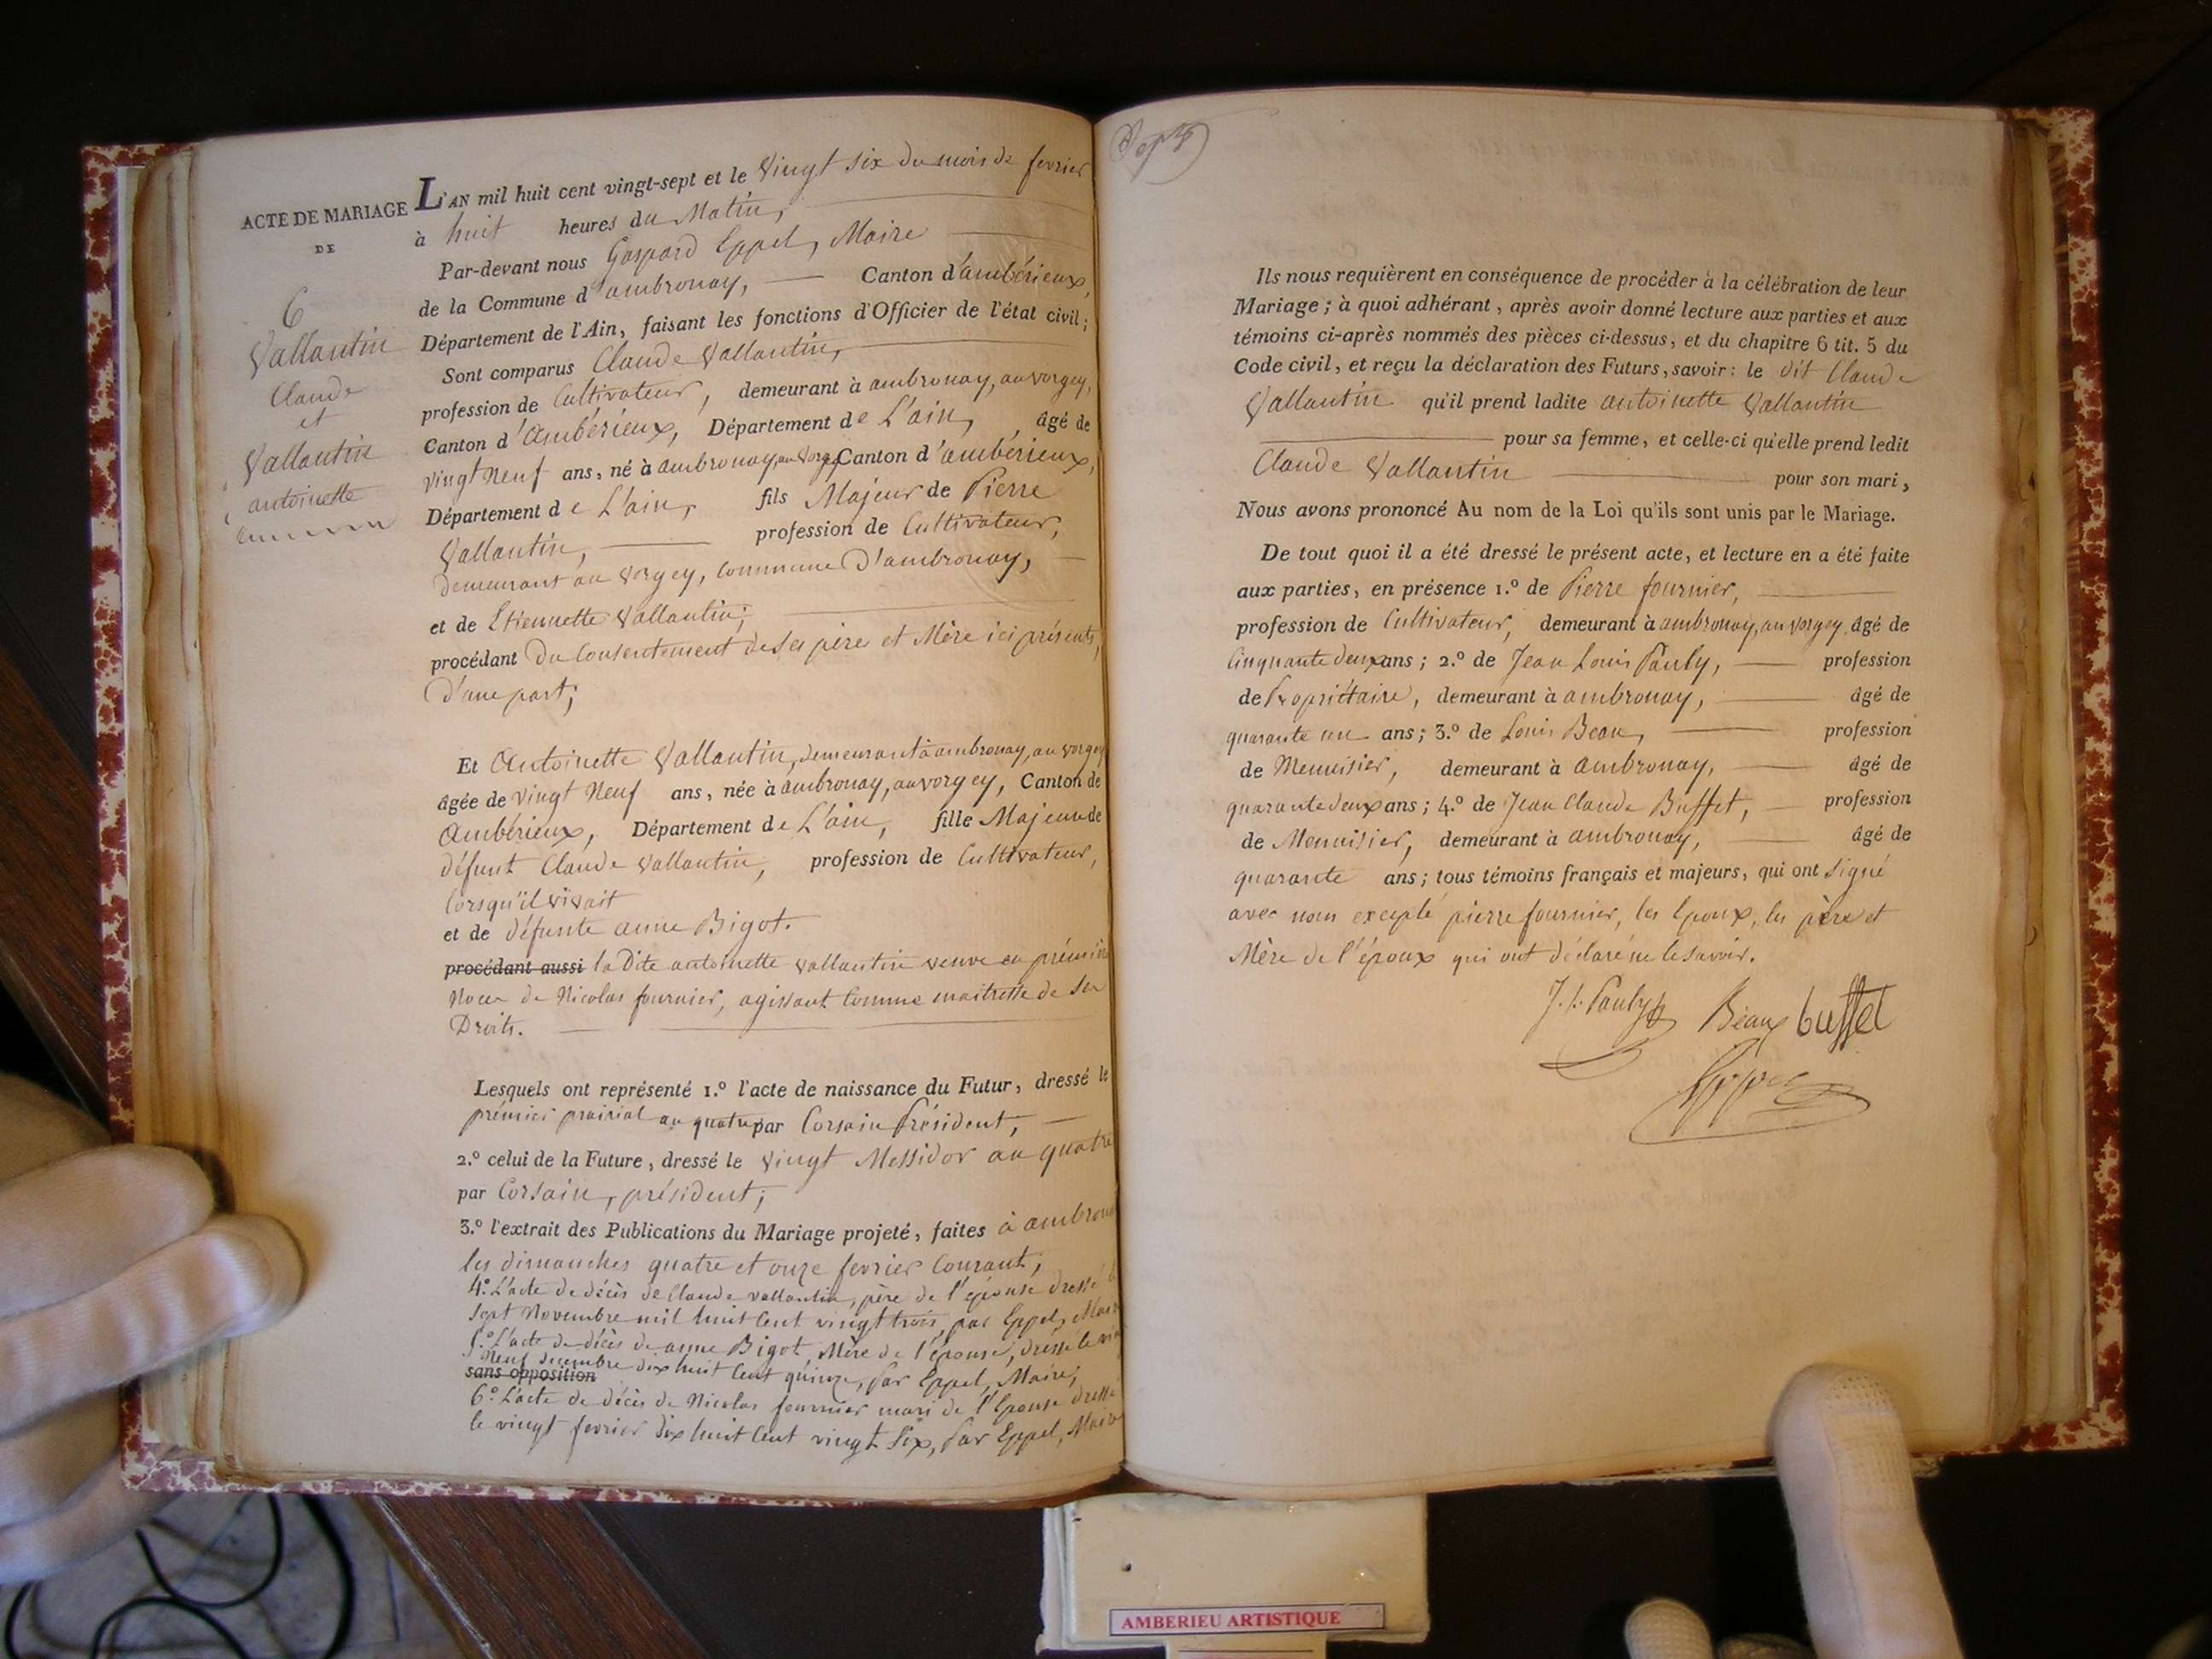 ACTE DE MARIAGE
DE
6
Vallantin
Claude
et
Vallantin
antoinette
L'AN mil huit cent vingt-sept et le Vingt six du mois de fevrier
à huit heures du Matin,
Par-devant nous Gaspard Eppel, Maire
de la Commune d'ambronay, Canton d'ambérieux,
Département de l'Ain, faisant les fonctions d'Officier de l'état civil;
Sont comparus Claude Vallantin,
profession de Cultivateur, demeurant à ambronay, au vorgey,
Canton d'Ambérieux, Département de L'ain, âgé de
vingt Neuf ans, né à ambronay, au Vorgey Canton d'ambérieux,
Département de L'ain, fils Majeur de Pierre
Vallantin, profession de Cultivateur,
demeurant au Vorgey, commune D'ambronay,
et de Etiennette Vallantin;
procédant Du Consentement de Ses père et Mère ici présents,
D'une part;
Et Antoinette Vallantin, demeurant à ambronay, au vorgey
âgée de Vingt Neuf ans, née à ambronay, au vorgey, Canton de
Ambérieux, Département de L'ain, fille Majeure de
défunt Claude Vallantin, profession de Cultivateur,
lorsqu'il vivait
et de défunte anne Bigot.
procédant aussi la Dite antoinette vallantin veuve en prémière
Noces de Nicolas fournier, agissant Comme maitresse de Ses
Droits.
Lesquels ont représenté 1.º l'acte de naissance du Futur, dressé le
prémier prairial an quatre par Corsain Président,
2.º celui de la Future, dressé le vingt Messidor an quatre
par Corsain, président;
3.º l'extrait des Publications du Mariage projeté, faites à ambronay
les dimanches quatre et onze fevrier Courant,
4.º L'acte de décès de Claude Vallantin, père de l'épouse dressé le
Sept Novembre mil huit Cent vingt trois, par Eppel, Maire
5.º L'acte de décès de anne Bigot Mère de l'épouse, dressé le vingt
Neuf decembre dix huit Cent quinze, par Eppel, Maire;
sans opposition
6.º L'acte de décès de Nicolas fournier mari de l'Epouse dressé
le vingt fevrier dix huit Cent vingt Six, par Eppel, Maire
Ils nous requièrent en conséquence de procéder à la célébration de leur
Mariage; à quoi adhérant, après avoir donné lecture aux parties et aux
témoins ci-après nommés des pièces ci-dessus, et du chapitre 6 tit. 5 du
Code civil, et reçu la déclaration des Futurs, savoir: le dit Claude
Vallantin qu'il prend ladite antoinette Vallantin
pour sa femme, et celle-ci qu'elle prend ledit
Claude Vallantin pour son mari,
Nous avons prononcé Au nom de la Loi qu'ils sont unis par le Mariage.
De tout quoi il a été dressé le présent acte, et lecture en a été faite
aux parties, en présence 1.º de Pierre fournier,
profession de Cultivateur, demeurant à ambronay, au vorgey âgé de
Cinquante deux ans; 2.º de Jean Louis Pauly, profession
de Propriétaire, demeurant à ambronay, âgé de
quarante un ans; 3.º de Louis Beau, profession
de Menuisier, demeurant à ambronay, âgé de
quarante deux ans; 4.º de Jean Claude Buffet, profession
de Menuisier, demeurant à ambronay, âgé de
quarante ans; tous témoins français et majeurs, qui ont Signé
avec nous excepté pierre fournier, les Epoux, les père et
Mère de l'époux qui ont déclaré ne le savoir.
J. L. Pauly Beau buffet
Eppel
AMBERIEU ARTISTIQUE